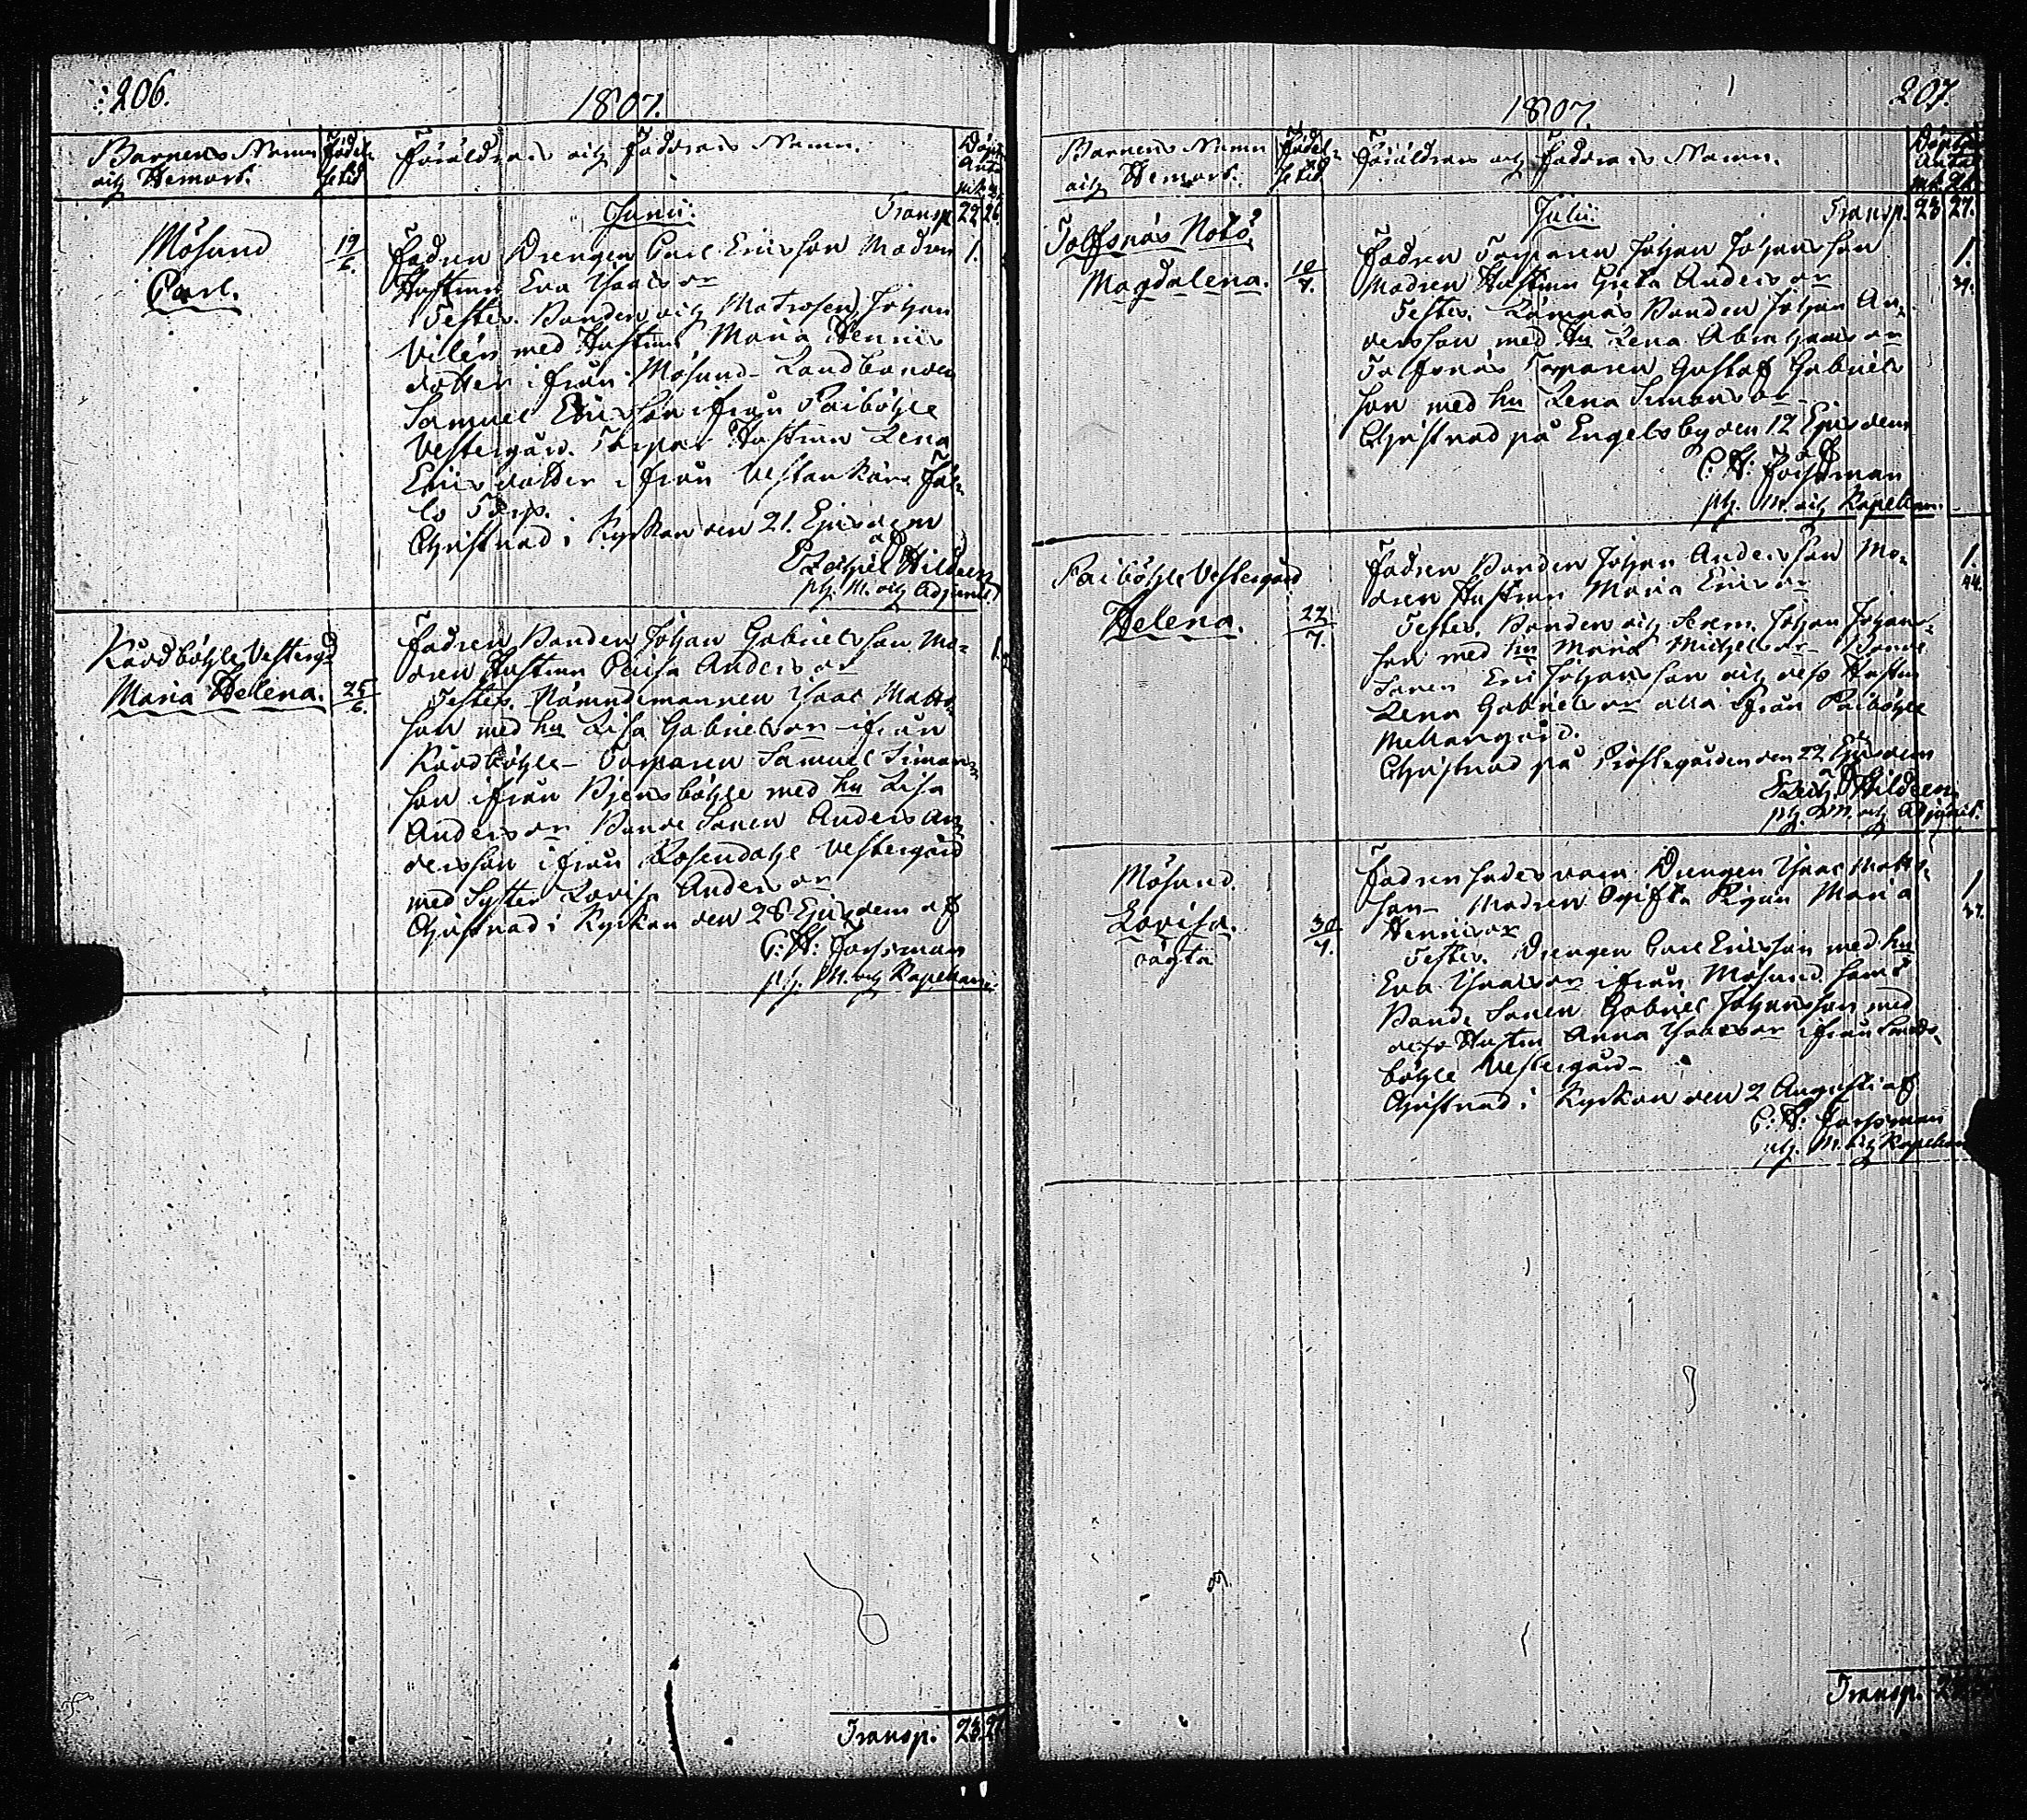 206.
1807.
Barnens Namn
och Hemort.
Födel-
setid
Föräldrars och Faddrars Namn.
Döpte
Antal
Junii.
Transp. 22 26
Mösund
Carl.
19/6.
Fadren Drengen Carl Ericsson Modren 1.
Hustrun Eva Isacs dr
Testes. Bonden och Matrosen Johan
Vilén med Hustrun Maria Henrics
dotter ifrån Mösund – Landbonden
Samuel Ericsson ifrån Paiböhle
Vestergård. Torpar Hustrun Lena
Erics dotter ifrån Vestankärr
Torp.
Christnad i Kyrkan den 21. Ejusdem
af
Ezechiel Hildeen
pch. M. och Adjunct.
Rårdböhle Vesterg:d
Maria Helena.
25/6.
Fadren Bonden Johan Gabrielsson Mo- 1.
dren Hustrun Caisa Anders dr
Testes. Nämndemannen Isaac Matts-
son med hu Lisa Gabriels dr ifrån
Rårdböhle – Torparen Samuel Simons-
son ifrån Bjensböhle med hu Lisa
Anders dr Bonde Sonen Anders An-
dersson ifrån Rosendahl Vestergård
med Syster Lovisa Anders dr
Christnad i Kyrkan den 28 Ejusdem af
C: H: Forssman
pch. M. och Kapellan
Transp. 23 27
207.
1807
Barnens Namn
och Hemort.
Födel-
setid
Föräldrars och Faddrars Namn.
Döpte
Antal
Julii.
Transp. 23 27.
Tolfsnäs Notö
Magdalena.
10/7.
Fadren Torparen Johan Johansson 1.
Modren Hustrun Greta Anders dr
Testes. Lämnäs Bonden Johan An-
dersson med Hu Lena Abrahams dr
Tolfsnäs Torparen Gustaf Gabriels
son med hu Lena Simons dr
Christnad på Engelsby den 12 Ejusdem
af
C: H: Forssman
pch. M. och Kapellan.
Paiböhle Vestergård
Helena.
22/7.
Fadren Bonden Johan Andersson Mo- 1.
dren Hustrun Maria Erics dr 44.
Testes. Bonden och Johan Johans-
son med hu Maria Michels dr – Bonde
Sonen Eric Johansson och dess Hustru
Lena Gabriels dr alla ifrån Paiböhle
Mellangård.
Christnad på Prostegården den 22 Ejusdem
af
Ezech. Hildeen
pch. M. och Adjunct.
Mösund.
Lovisa.
oägta
30/7.
Fadren sades vara Drengen Isaac Matts- 1
son – Modren Ogifta Pigan Maria
Henrics dr 37.
Testes. Drengen Carl Ericsson med hu
Eva Isacs dr ifrån Mösund samt
Bonde Sonen Gabriel Johansson med
dess Hustru Anna Isaacs dr ifrån
böhle Vestergård –
Christnad i Kyrkan den 2 Augusti af
C: H: Forssman
pch. M. och Kapellan
Transp.